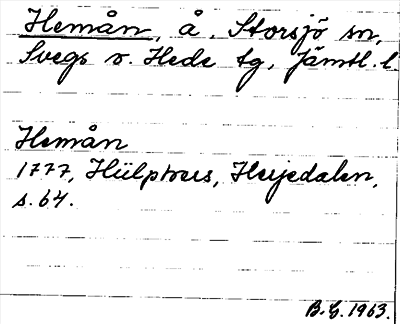 Hemån, å. Storsjö sn,
Svegs o. Hede tg, Jämtl. l
Hemån
1777, Hülphers, Herjedalen,
s. 64.
B.G. 1963.